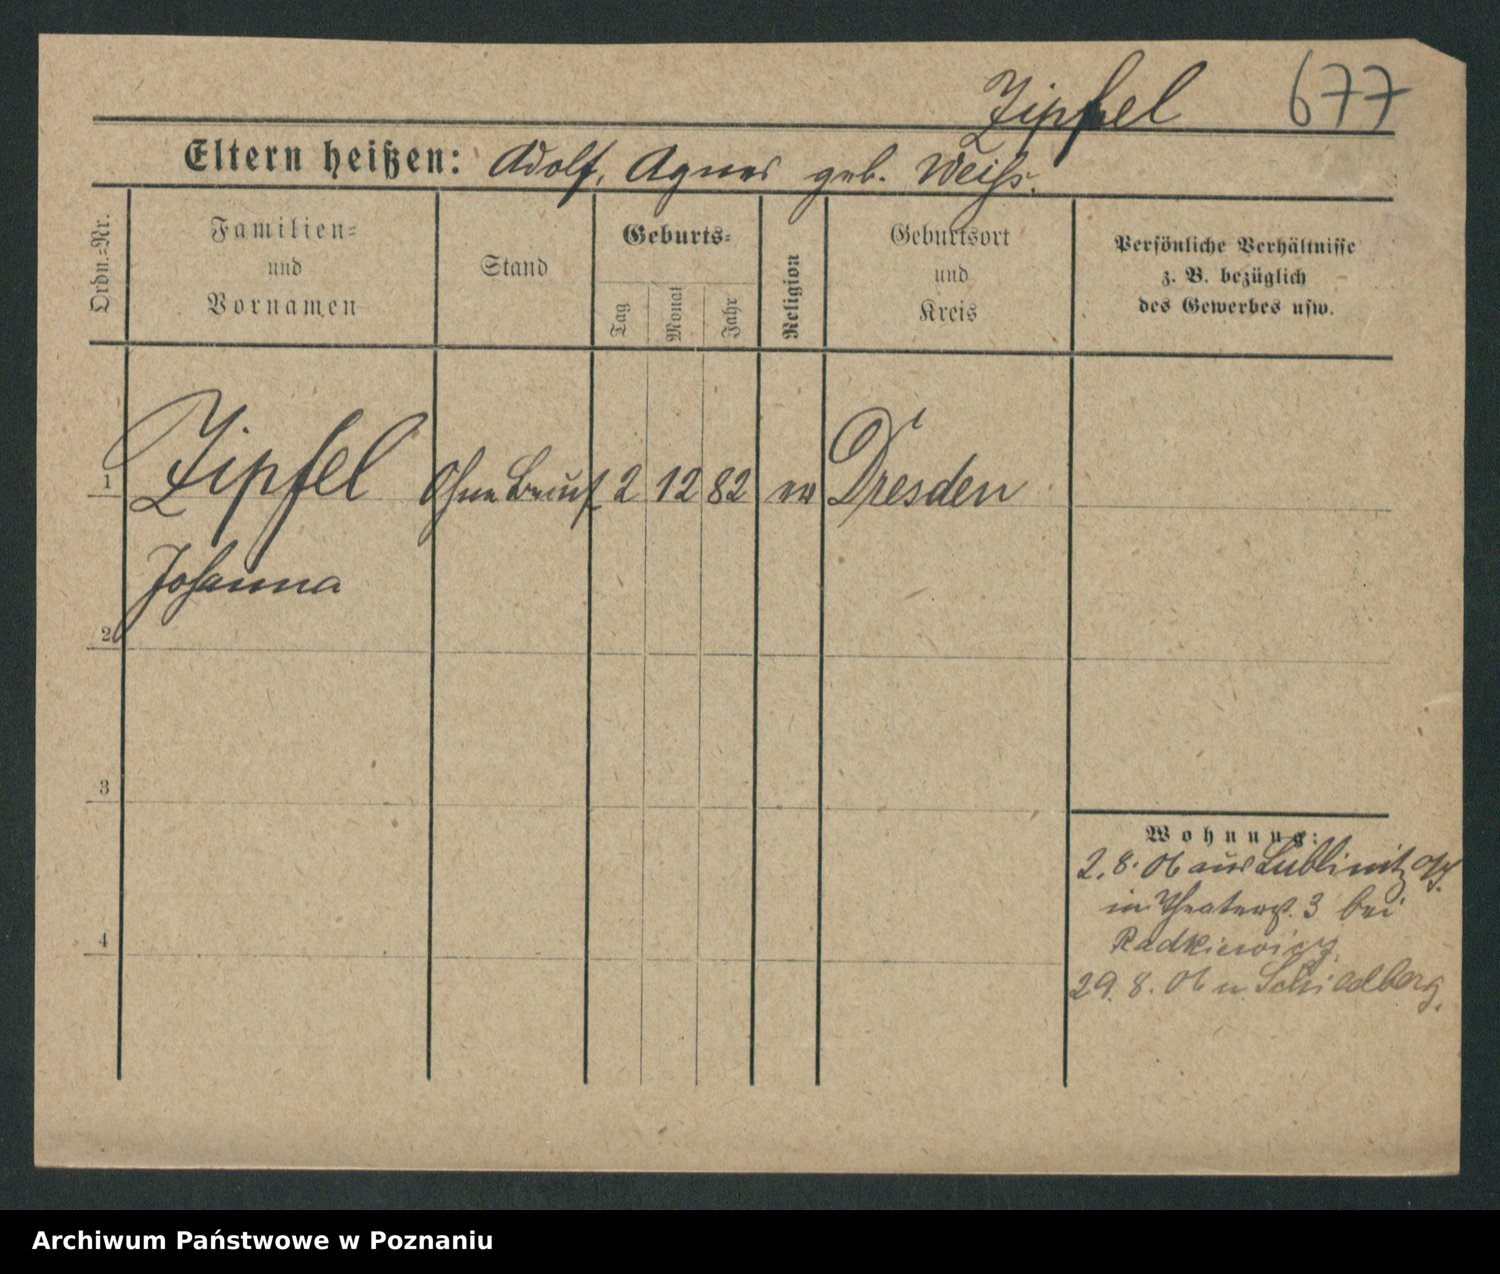 Zipfel 677
Eltern heißen: Adolf, Agnes geb. Weiss.
Ordn.=Nr.
Familien=
und
Vornamen
Stand
Geburts=
Tag
Monat
Jahr
Religion
Geburtsort
und
Kreis
Persönliche Verhältnisse
z. B. bezüglich
des Gewerbes usw.
1 Zipfel ohne Beruf 2 12 82 ev Dresden
Johanna
2
3
4
Wohnung:
2. 8. 06 aus Lublinitz O/S.
in Theaterst. 3 bei
Radkiewicz.
29. 8. 06 n.
Archiwum Państwowe w Poznaniu